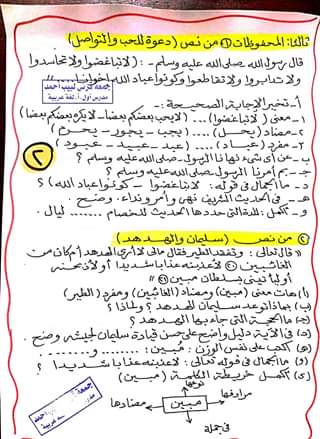 ثالثا: المحفوظات ① من نص (دعوة للحب والتواصل)
قال رسول الله صلى الله عليه وسلم -: ( لا تباغضوا ولا تحاسدوا
ولا تدابروا ولا تقاطعوا وكونوا عباد الله إخوانا ....)
جمعه لبيب أحمد
مدرس أول أ. لغة عربية
أ - تخير الإجابة الصحيحة :-
١- معنى (لا تباغضوا) .... (لا يحب بعضكم بعضا - لا يكره بعضكم بعضا)
٢- مضاد (يحل) .... (يجب - يجوز - يحرم)
٣- مفرد (عباد) .... (عبد - عبيد - عبود)
ب- عن أي شيء نهانا الرسول صلى الله عليه وسلم ؟
ج- بم أمرنا الرسول صلى الله عليه وسلم ؟
د- ما الجمال في قوله : لا تباغضوا - كونوا عباد الله) ؟
هـ - في الحديث الشريف نهى وأمر ونداء. وضح.
و- أكمل : المدة التي حددها الحديث للخصام ...... ليال.
٢
② من نص (سليمان والهدهد)
قال تعالى : وتفقد الطير فقال مالي لا أرى الهدهد أم كان من
الغائبين ⑳ لأعذبنه عذابا شديدا أو لأذبحنه
أو ليأتيني بسلطان مبين ㉑
(أ) هات معنى (مبين) ومضاد (الغائبين) ومفرد (الطير)
(ب) بماذا توعد سليمان الهدهد ؟ ولماذا ؟
(ج) ما الحجة التي جاء بها الهدهد ؟
(د) في الآية دليل واضح على حسن قيادة سليمان لجيشه وضح.
(هـ) اكتب على نفس الوزن : مبين : ........ و........
(و) ما الجمال في قوله تعالى : لأعذبنه عذابا شديدا ؟
(ى) أكمل خريطة الكلمة (مبين)
نوعها
مرادفها
مبين
مضادها
في جملة
جمعه
أحمد
لغة عربية